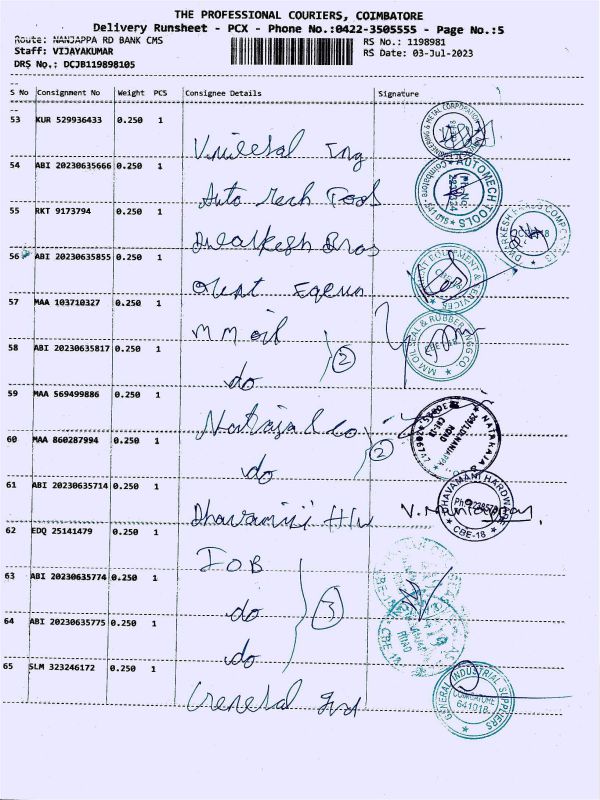 THE PROFESSIONAL COURIERS, COIMBATORE
Delivery Runsheet - PCX - Phone No.:0422-3505555 - Page No.:5
Route: NANJAPPA RD BANK CMS
RS No.: 1198981
Staff: VIJAYAKUMAR
RS Date: 03-Jul-2023
DRS No.: DCJB119898105
S No Consignment No Weight PCS Consignee Details Signature
53 KUR 529936433 0.250 1
Universal Eng
54 ABI 20230635666 0.250 1
Auto Mech Tools
AUTOMECH TOOLS
55 RKT 9173794 0.250 1
Dwarkesh Bros
56 ABI 20230635855 0.250 1
Orient Equn
57 MAA 103710327 0.250 1
MM oil
MM OIL SEAL & RUBBER ENGG CO
58 ABI 20230635817 0.250 1
do
2
59 MAA 569499886 0.250 1
Nataraja & Co
60 MAA 860287994 0.250 1
do
2
61 ABI 20230635714 0.250 1
Dhavamani H/w
DHAVAMANI HARDWARE
CBE-18
62 EDQ 25141479 0.250 1
IOB
63 ABI 20230635774 0.250 1
do
3
64 ABI 20230635775 0.250 1
do
65 SLM 323246172 0.250 1
General Ind
GENERAL INDUSTRIAL SUPPLIERS
COIMBATORE
641018